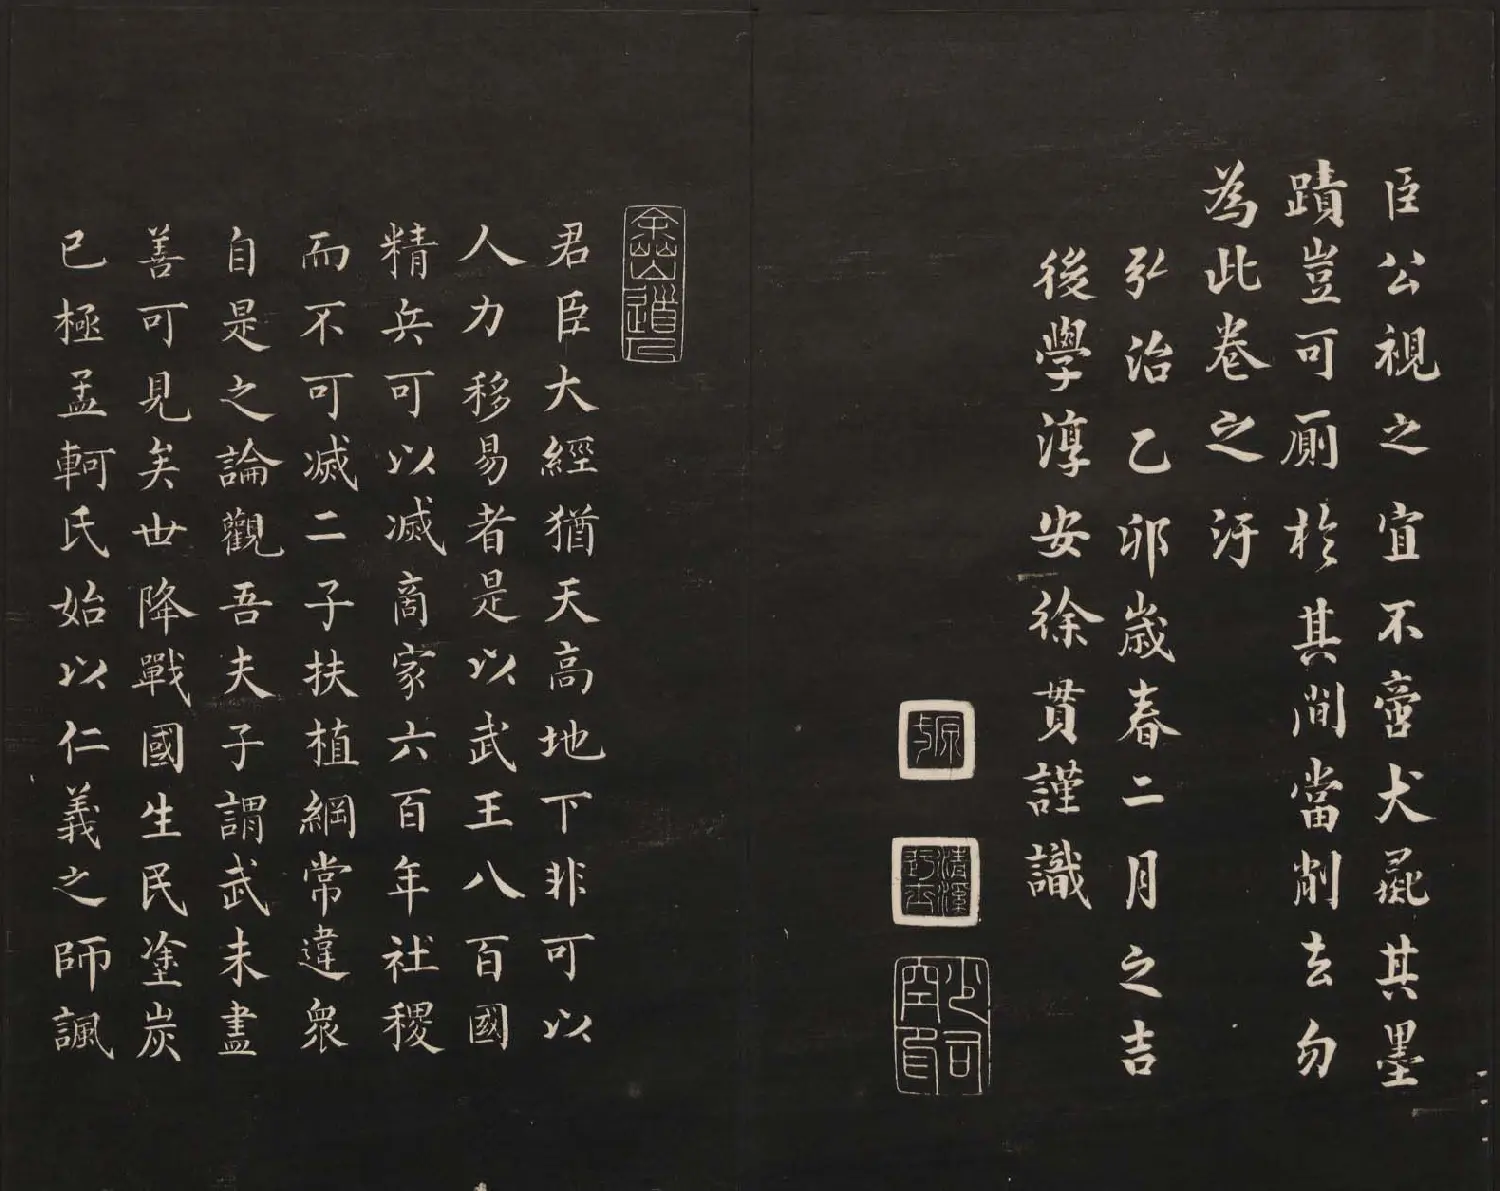 臣公視之宜不啻犬彘其墨
蹟豈可厠於其間當削去勿
為此卷之汙
弘治乙邜歲春二月之吉
後學淳安徐貫謹識
君臣大經猶天高地下非可以
人力移易者是以武王八百國
精兵可以滅商家六百年社稷
而不可滅二子扶植綱常違衆
自是之論觀吾夫子謂武未盡
善可見矣世降戰國生民塗炭
已極孟軻氏始以仁義之師諷